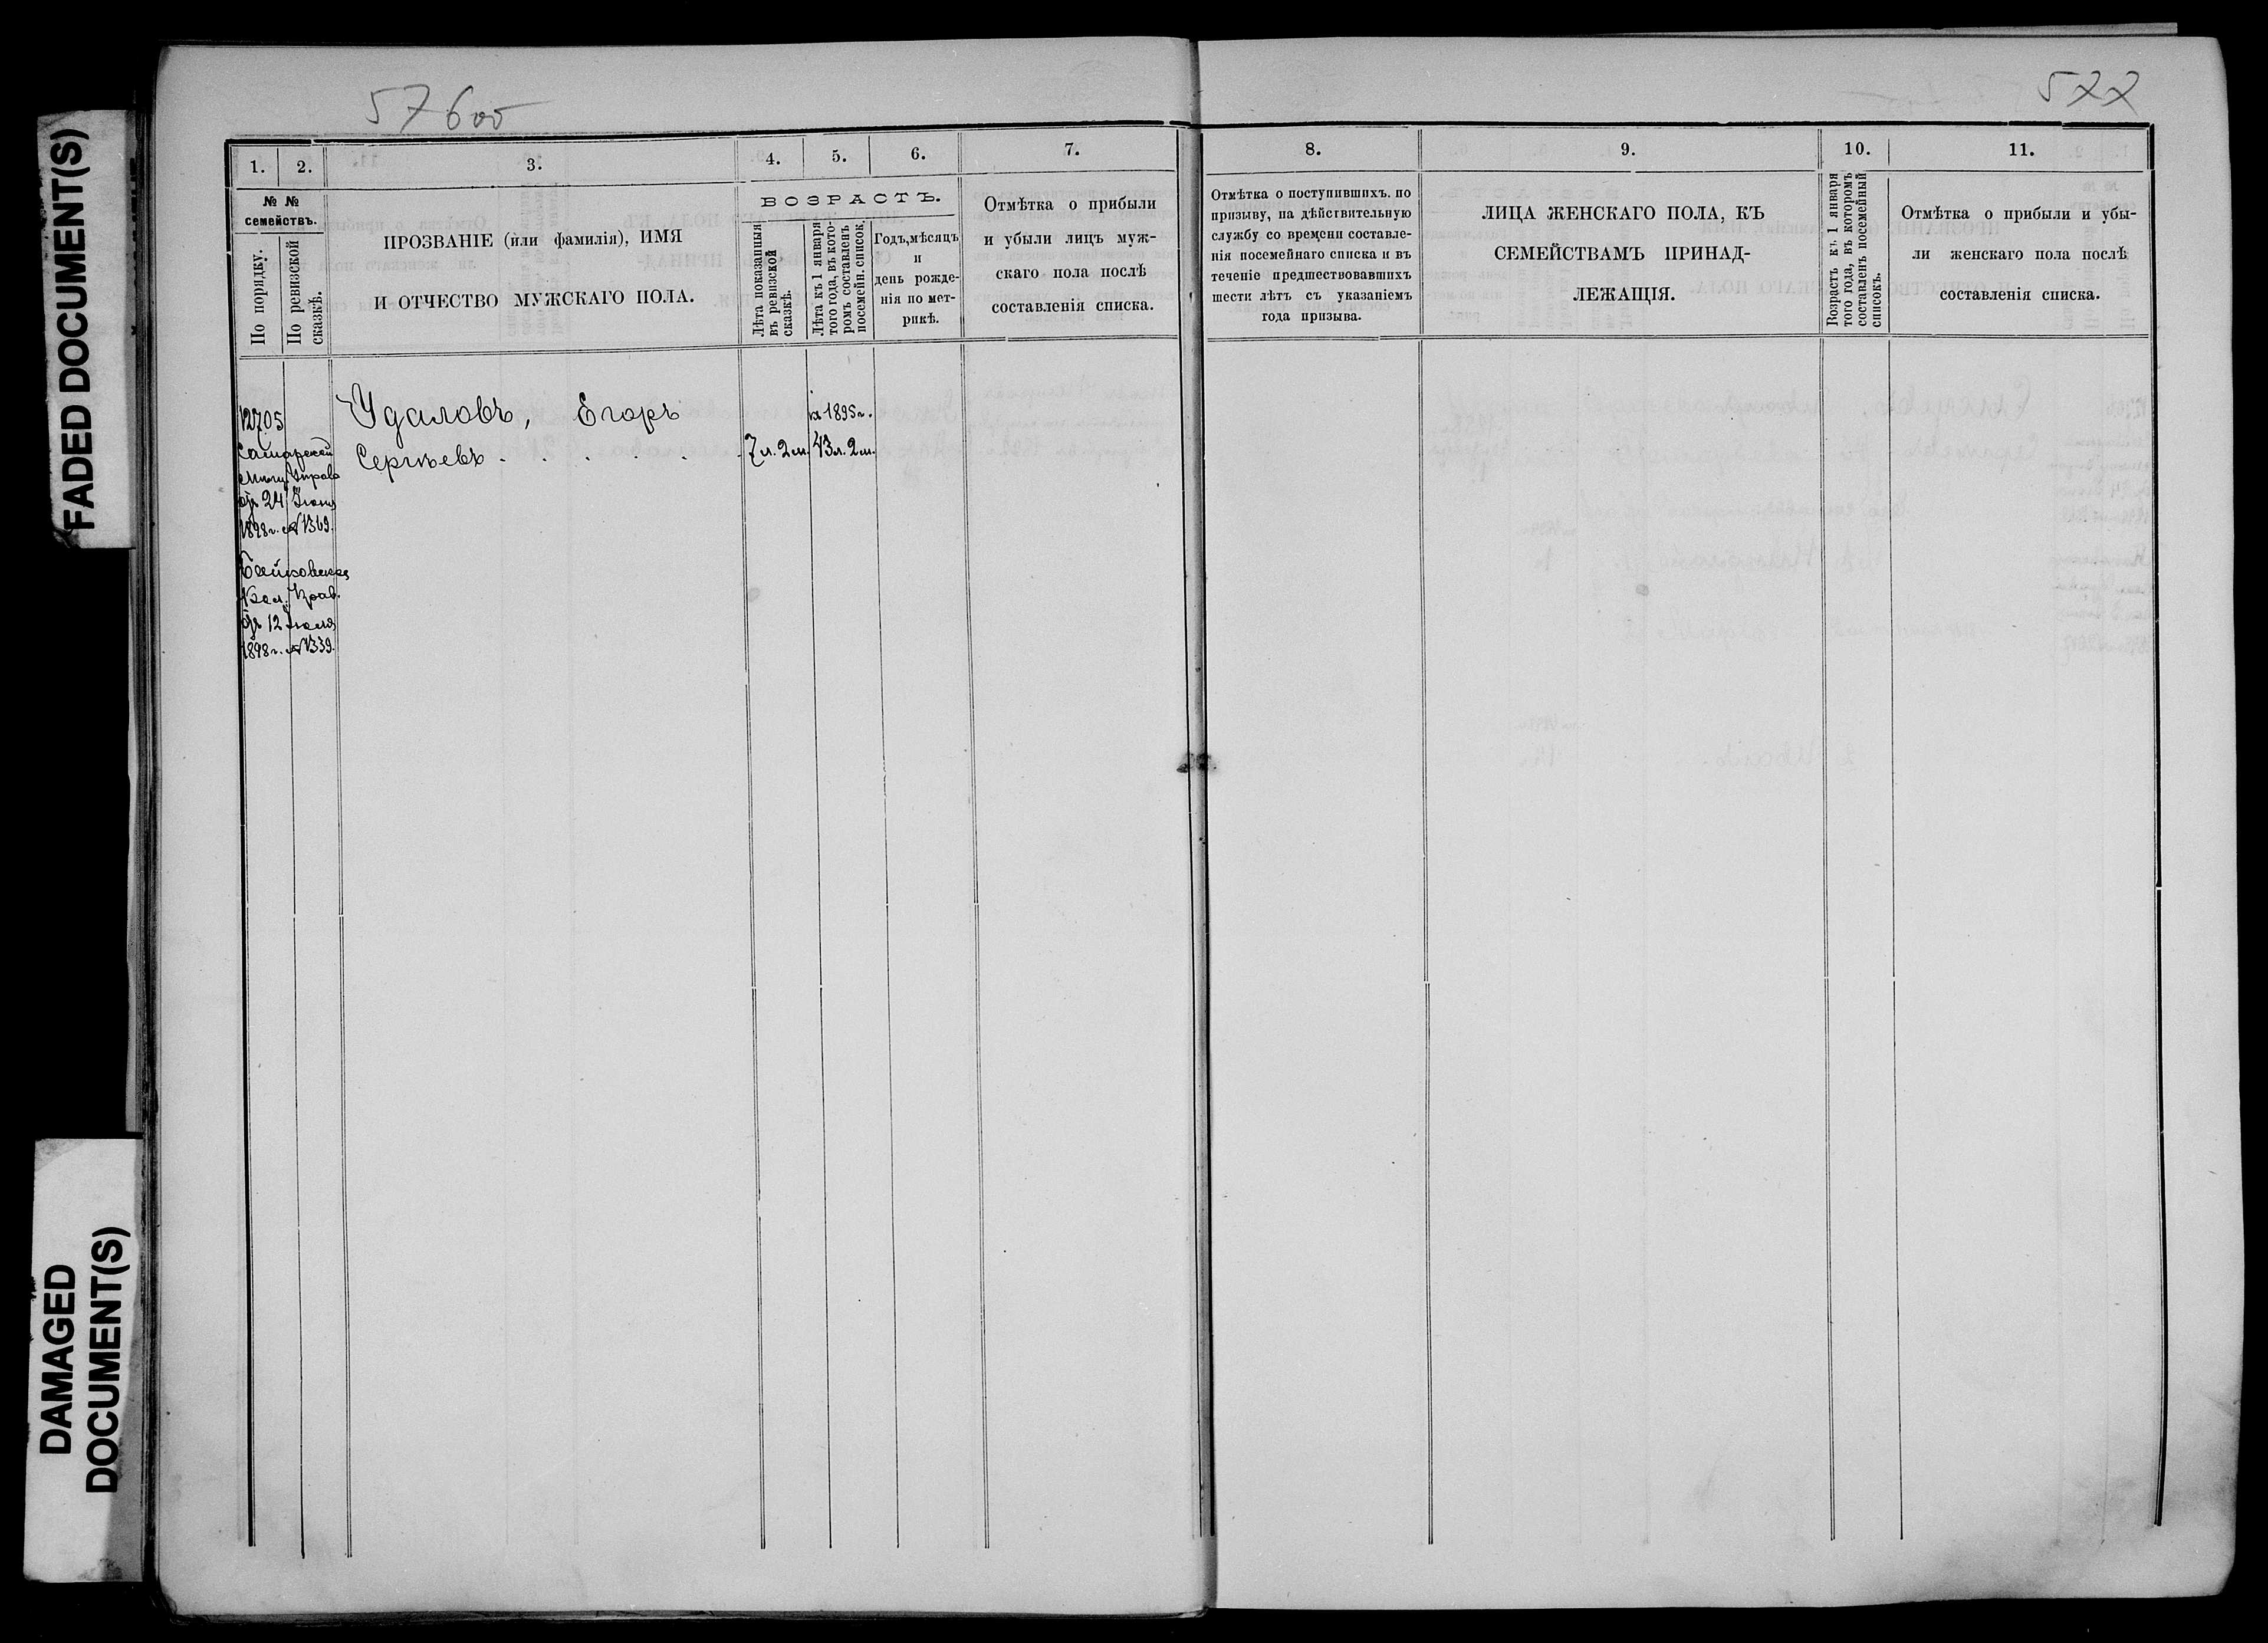 FADED DOCUMENT(S)
DAMAGED
DOCUMENT(S)
576 об
522
1. 2. 3. 4. 5. 6. 7.
№ №
семействъ.
По порядку.
По ревизской
сказкѣ.
ПРОЗВАНІЕ (или фамилія), ИМЯ
И ОТЧЕСТВО МУЖСКАГО ПОЛА.
ВОЗРАСТЪ.
Лѣта показанныя
въ ревизской
сказкѣ.
Лѣта къ 1 января
того года, въ кото-
ромъ составленъ
посемейн. список.
Годъ, мѣсяцъ
и
день рожде-
нія по мет-
рикѣ.
Отмѣтка о прибыли
и убыли лицъ муж-
скаго пола послѣ
составленія списка.
8. 9. 10. 11.
Отмѣтка о поступившихъ. по
призыву, на дѣйствительную
службу со времени составле-
нія посемейнаго списка и въ
теченіе предшествовавшихъ
шести лѣтъ съ указаніемъ
года призыва.
ЛИЦА ЖЕНСКАГО ПОЛА, КЪ
СЕМЕЙСТВАМЪ ПРИНАД-
ЛЕЖАЩІЯ.
Возрастъ къ 1 января
того года, въ которомъ
составленъ посемейный
списокъ.
Отмѣтка о прибыли и убы-
ли женскаго пола послѣ
составленія списка.
12705
Самарской
Мѣщ. Управ
отъ 24 Іюня
1898 г. №1369.
Вол. Прав.
отъ 12 Іюля
1898 г. №1339.
Удаловъ, Егоръ
Сергѣевъ . . . . .
1895 г.
7 л. 2 м. 43 л. 2 м.